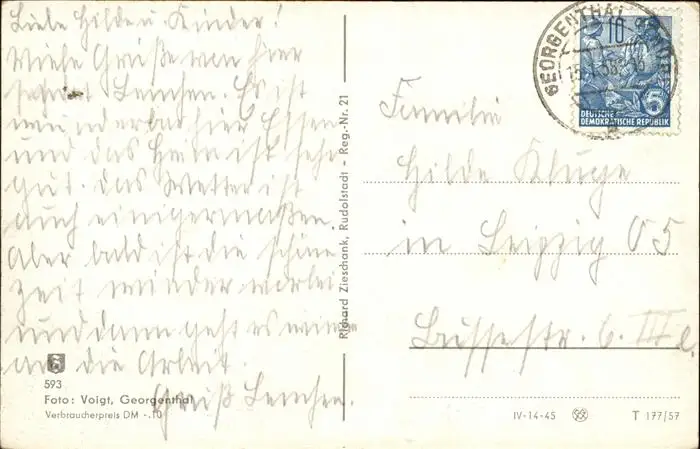 Liebe Hilde u. Kinder!
Viele Grüße von hier
sendet Lenchen. Es ist
wunderbar hier Essen
und das Heim ist sehr
gut. das Wetter ist
auch einigermaßen.
Aber bald ist die schöne
Zeit wieder vorbei
und dann geht es wieder
an die Arbeit.
Gruß Lenchen.
593
Foto: Voigt, Georgenthal
Verbraucherpreis DM -.10
Richard Zieschank, Rudolstadt - Reg.-Nr. 21
GEORGENTHAL
10
5
DEUTSCHE
DEMOKRATISCHE REPUBLIK
Familie
Hilde Kluge
in Leipzig O5
str. 6 III l.
IV-14-45
T 177/57